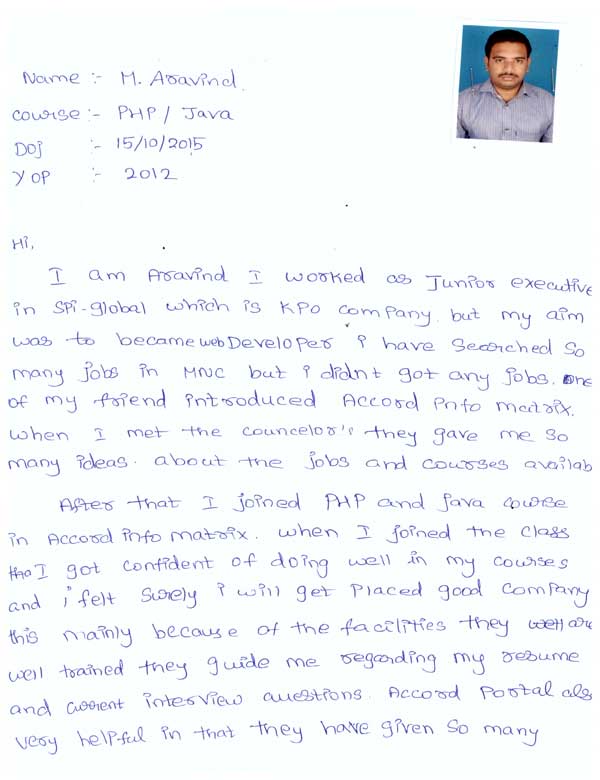 Name :- M. Aravind
Course :- PHP / Java
DOJ :- 15/10/2015
YOP :- 2012
Hi,
I am Aravind I worked as Junior executive
in SPi-global which is KPO company. but my aim
was to became web Developer i have Searched so
many jobs in MNC but i didnt got any jobs. one
of my friend introduced Accord Info matrix.
when I met the councelor's they gave me so
many ideas. about the jobs and courses availab
After that I joined PHP and java course
in Accord info matrix. when I joined the class
I got confident of doing well in my courses
and i felt Surely i will get Placed good company
this mainly because of the facilities they are
well trained they guide me regarding my resume
and current interview questions. Accord Portal als
very helpful in that they have given so many